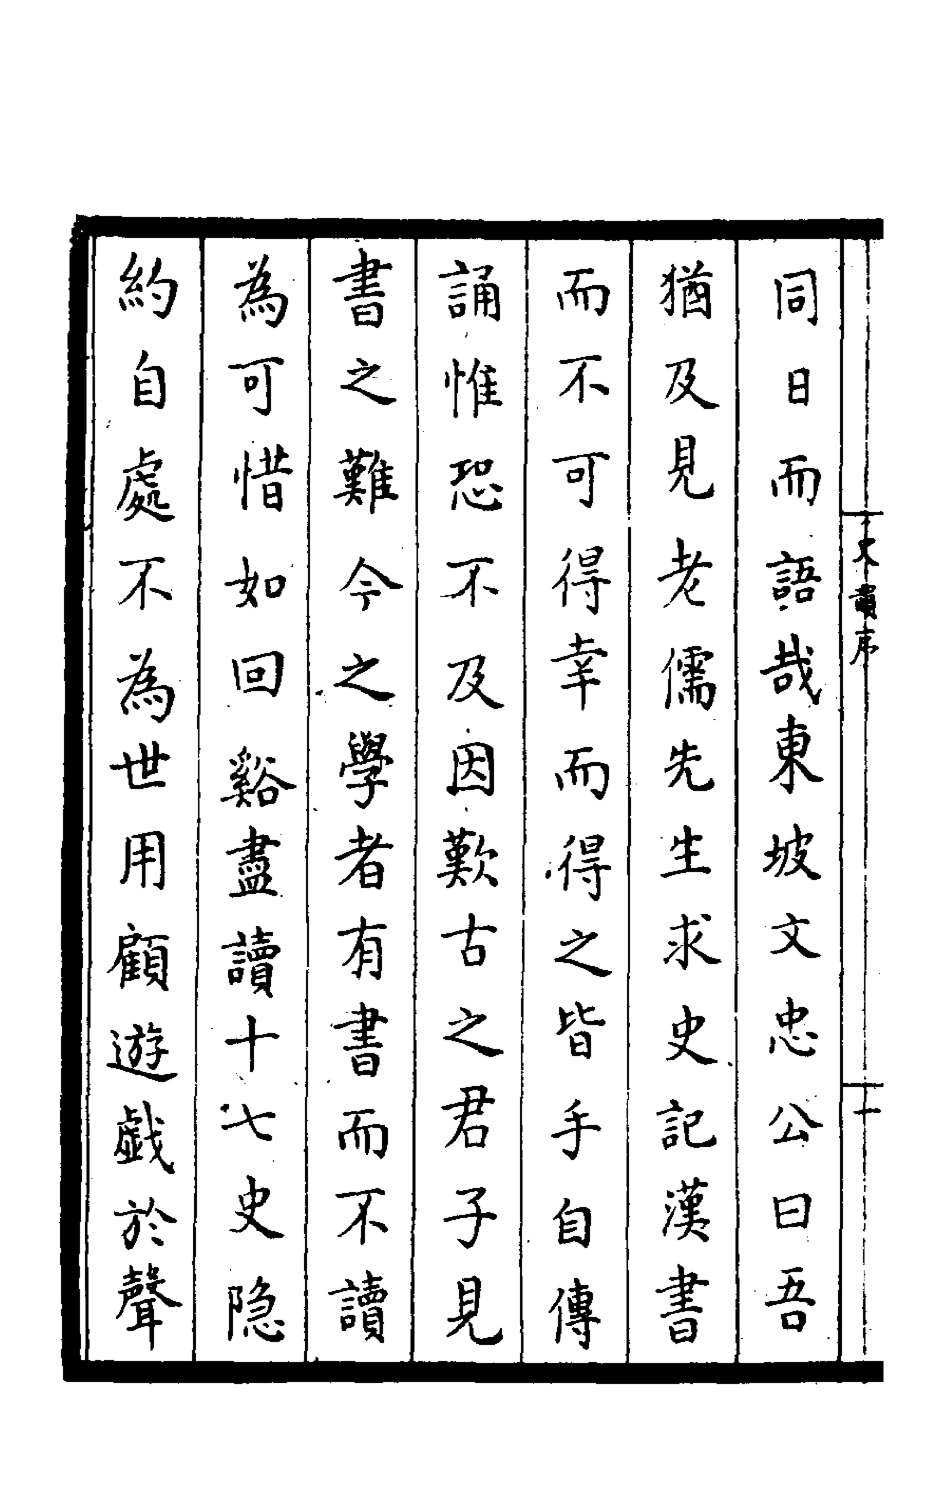 同日而語哉東坡文忠公曰吾
猶及見老儒先生求史記漢書
而不可得幸而得之皆手自傳
誦惟恐不及因歎古之君子見
書之難今之學者有書而不讀
為可惜如回谿盡讀十七史隐
約自處不為世用顧遊戲於聲
史韻序
一